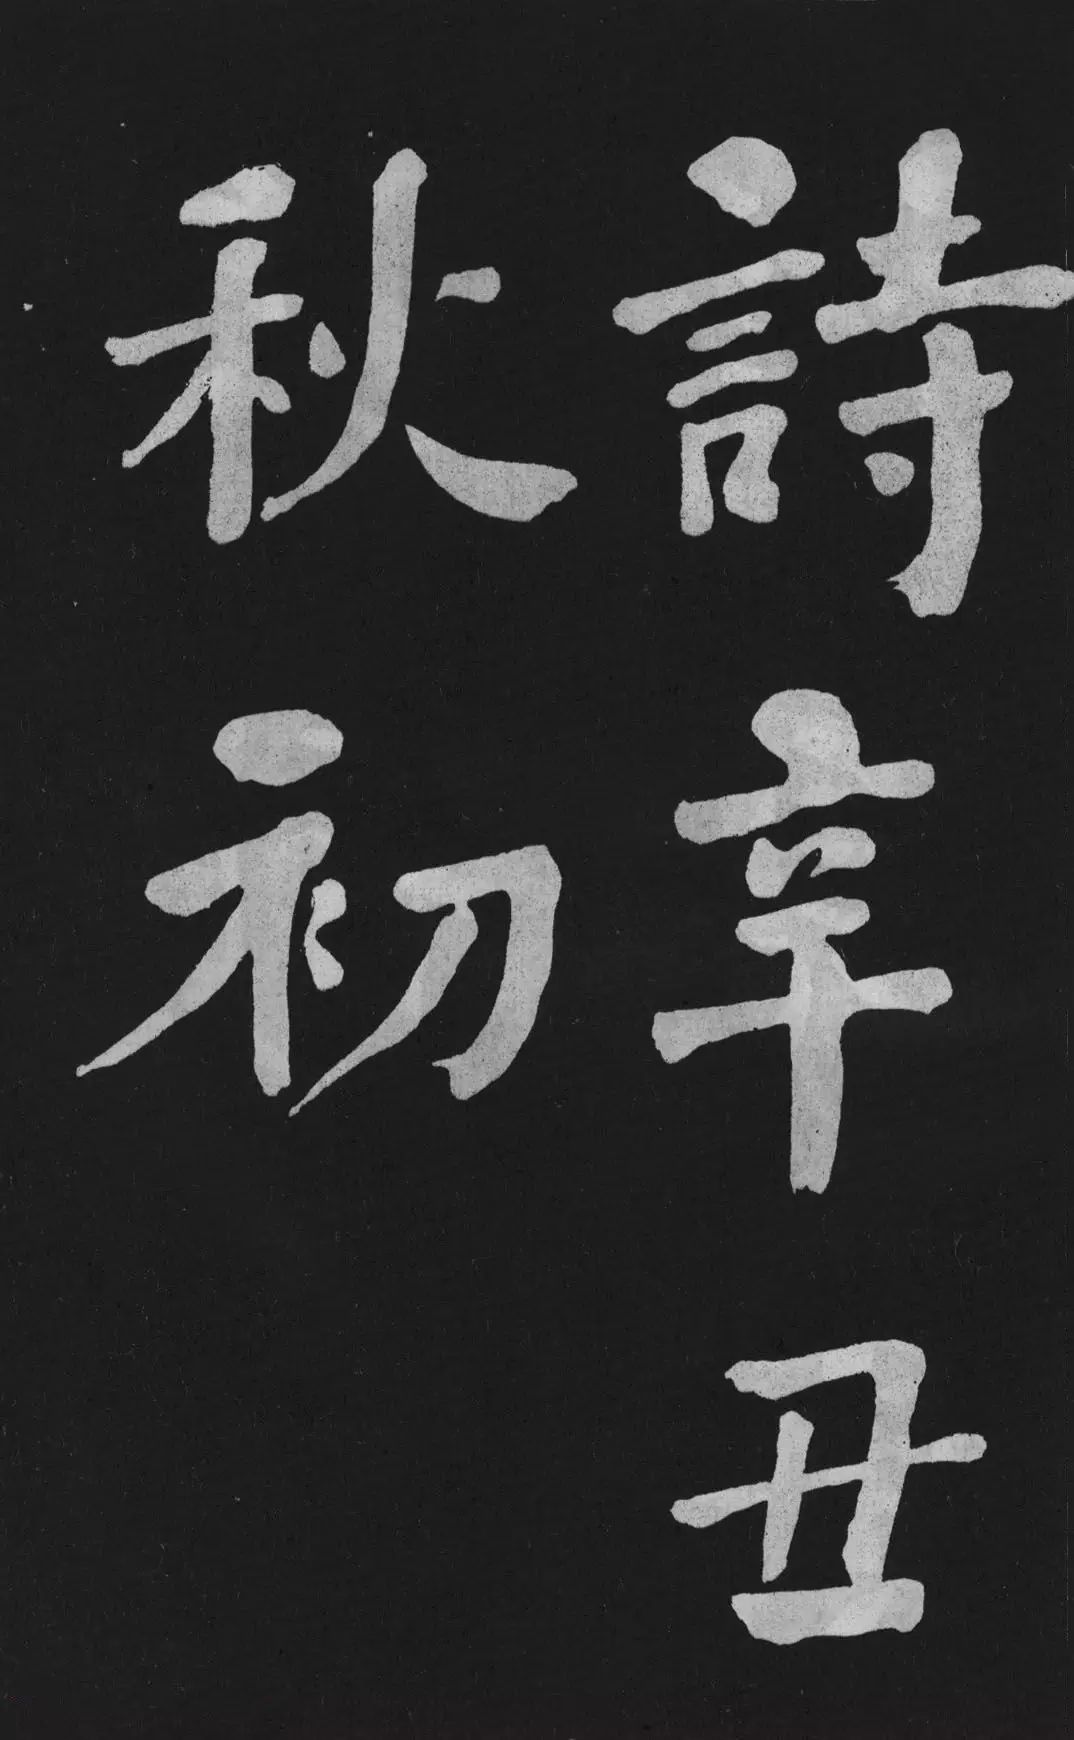 詩辛丑
秋初